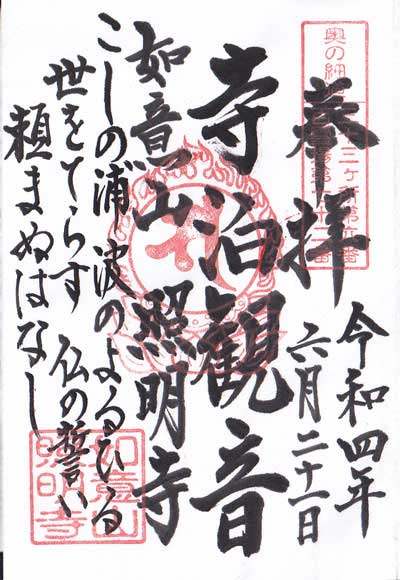 奉拝
令和四年
六月二十一日
寺泊観音
如意山 照明寺
こしの浦 波のよるひる
世をてらす 仏の誓い
頼まぬはなし
如意山
照明寺